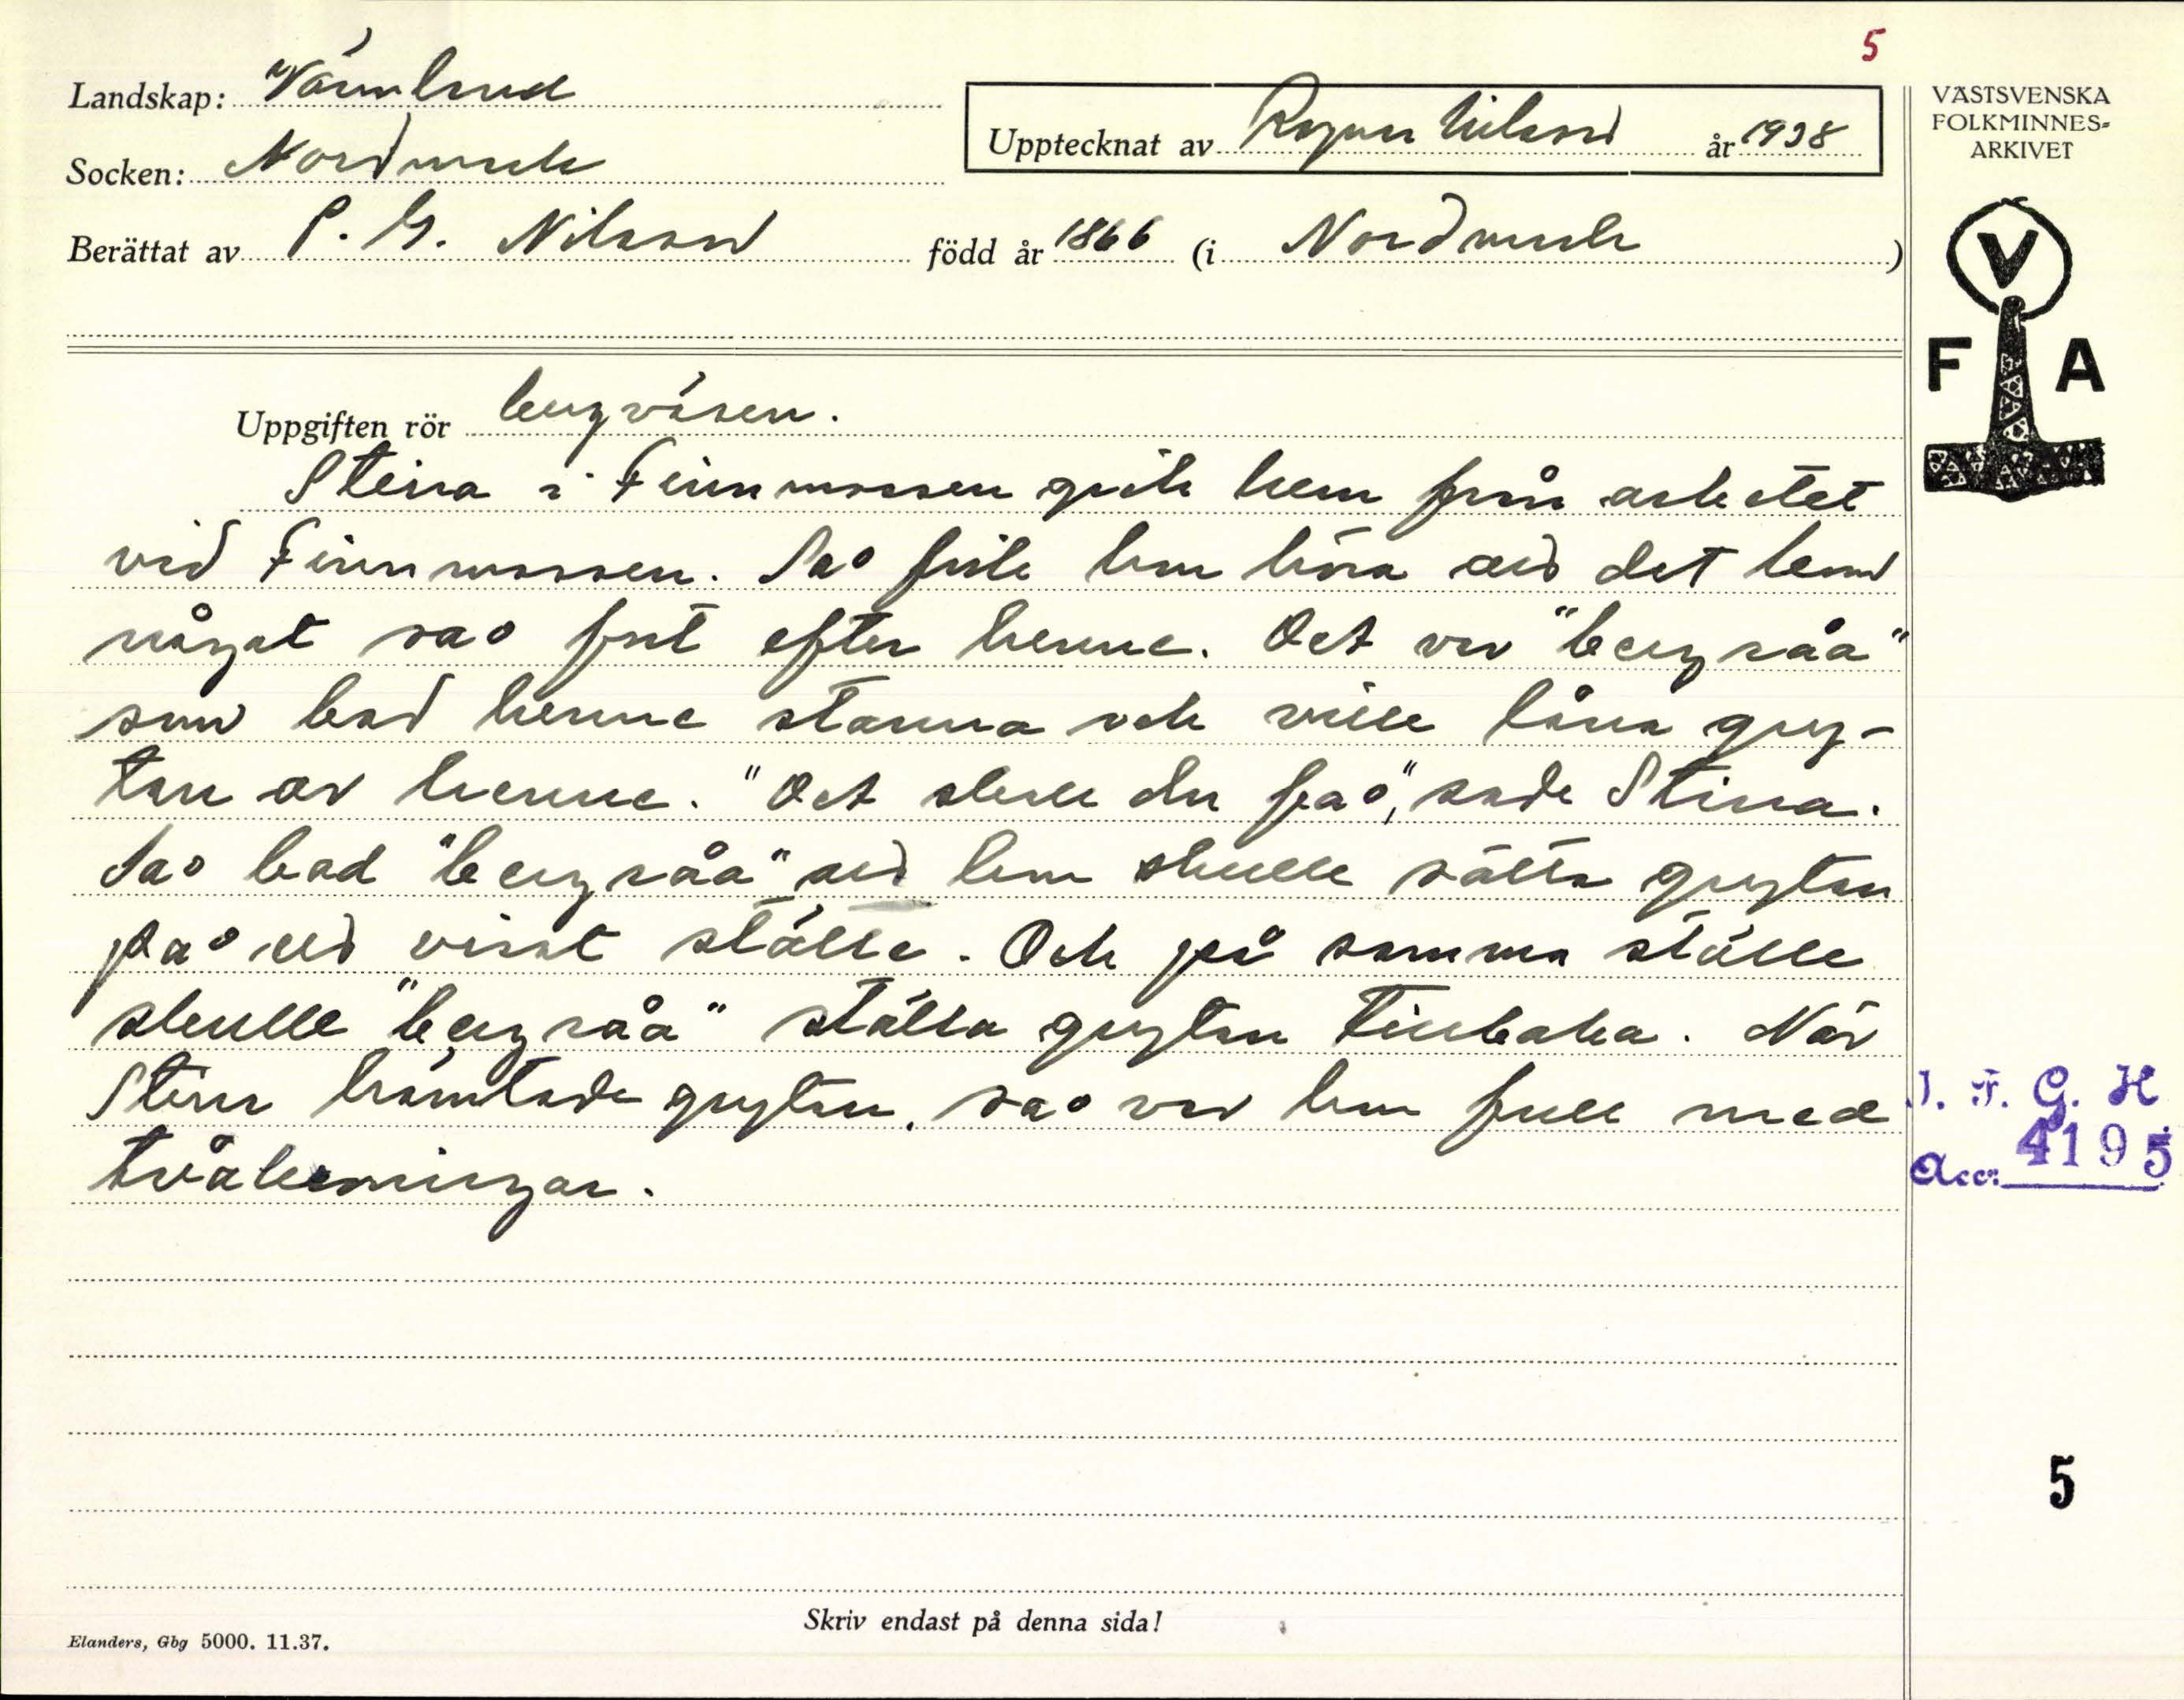 5
Landskap: Värmland
Socken: Nordmark
Upptecknat av Ragnar Nilsson år 1938
Berättat av P. G. Nilsson född år 1866 (i Nordmark)
VÄSTSVENSKA
FOLKMINNES-
ARKIVET
V
F A
Uppgiften rör bergväsen.
Stina i Finnmossen gick hem från arbetet
vid Finnmossen. Så fick hon höra att det kom
något så fort efter henne. Det var "bergråa"
som bad henne stanna och ville låna gry-
tan av henne. "Det skall du få", sade Stina.
Så bad "bergråa" att hon skulle sätta grytan
på ett visst ställe. Och på samma ställe
skulle "bergråa" ställa grytan tillbaka. När
Stina hämtade grytan, så var hon full med
tvåkroningar.
I. F. G. H
Acc: 4195
5
Skriv endast på denna sida!
Elanders, Gbg 5000. 11.37.